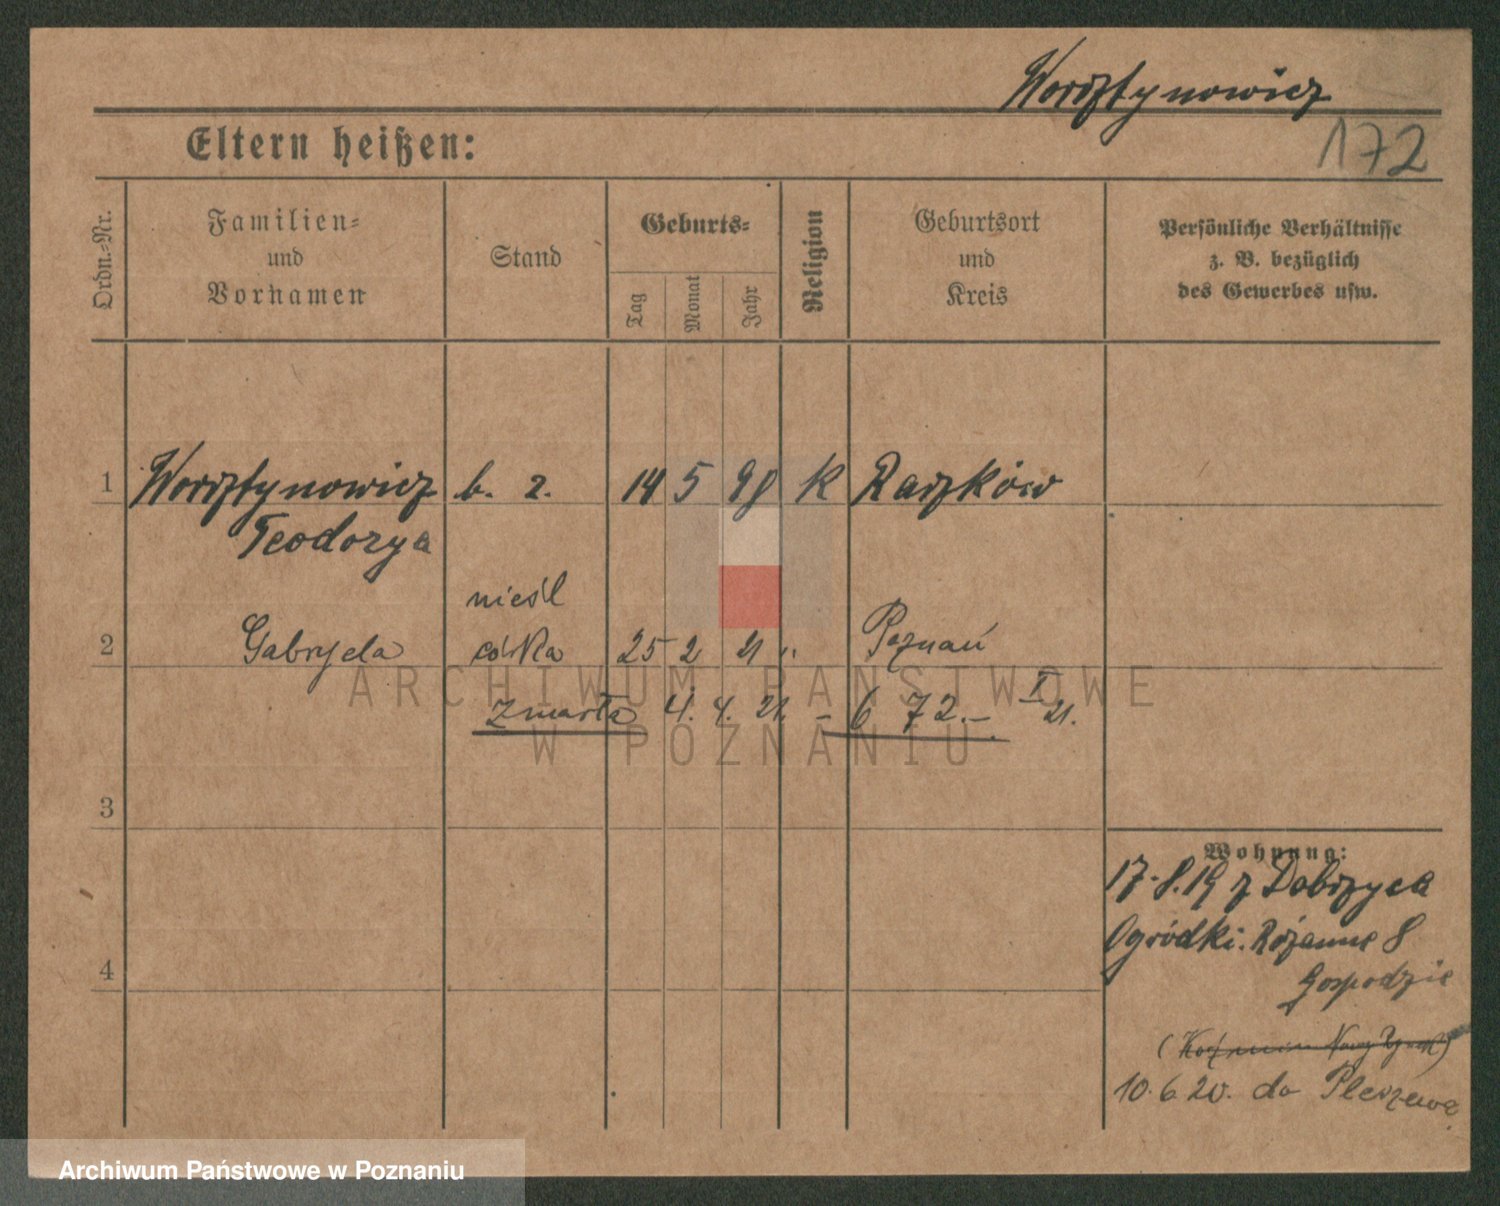 Worsztynowicz
172
Eltern heißen:
Ordn.-Nr.
Familien-
und
Vornamen
Stand
Geburts-
Tag
Monat
Jahr
Religion
Geburtsort
und
Kreis
Persönliche Verhältnisse
z. B. bezüglich
des Gewerbes usw.
1 Worsztynowicz b. z. 14 5 98 K Raszków
Teodozya
nieśl
2 Gabryela córka 25 2 21 " Poznań
zmarła 4. 4. 21. – 6 72.– I 21.
3
4
Wohnung:
17.8.19 z Dobrzyca
Ogródki. Różanne 8
Gospodzie
10.6.20. do Pleszewa
ARCHIWUM PAŃSTWOWE
W POZNANIU
Archiwum Państwowe w Poznaniu